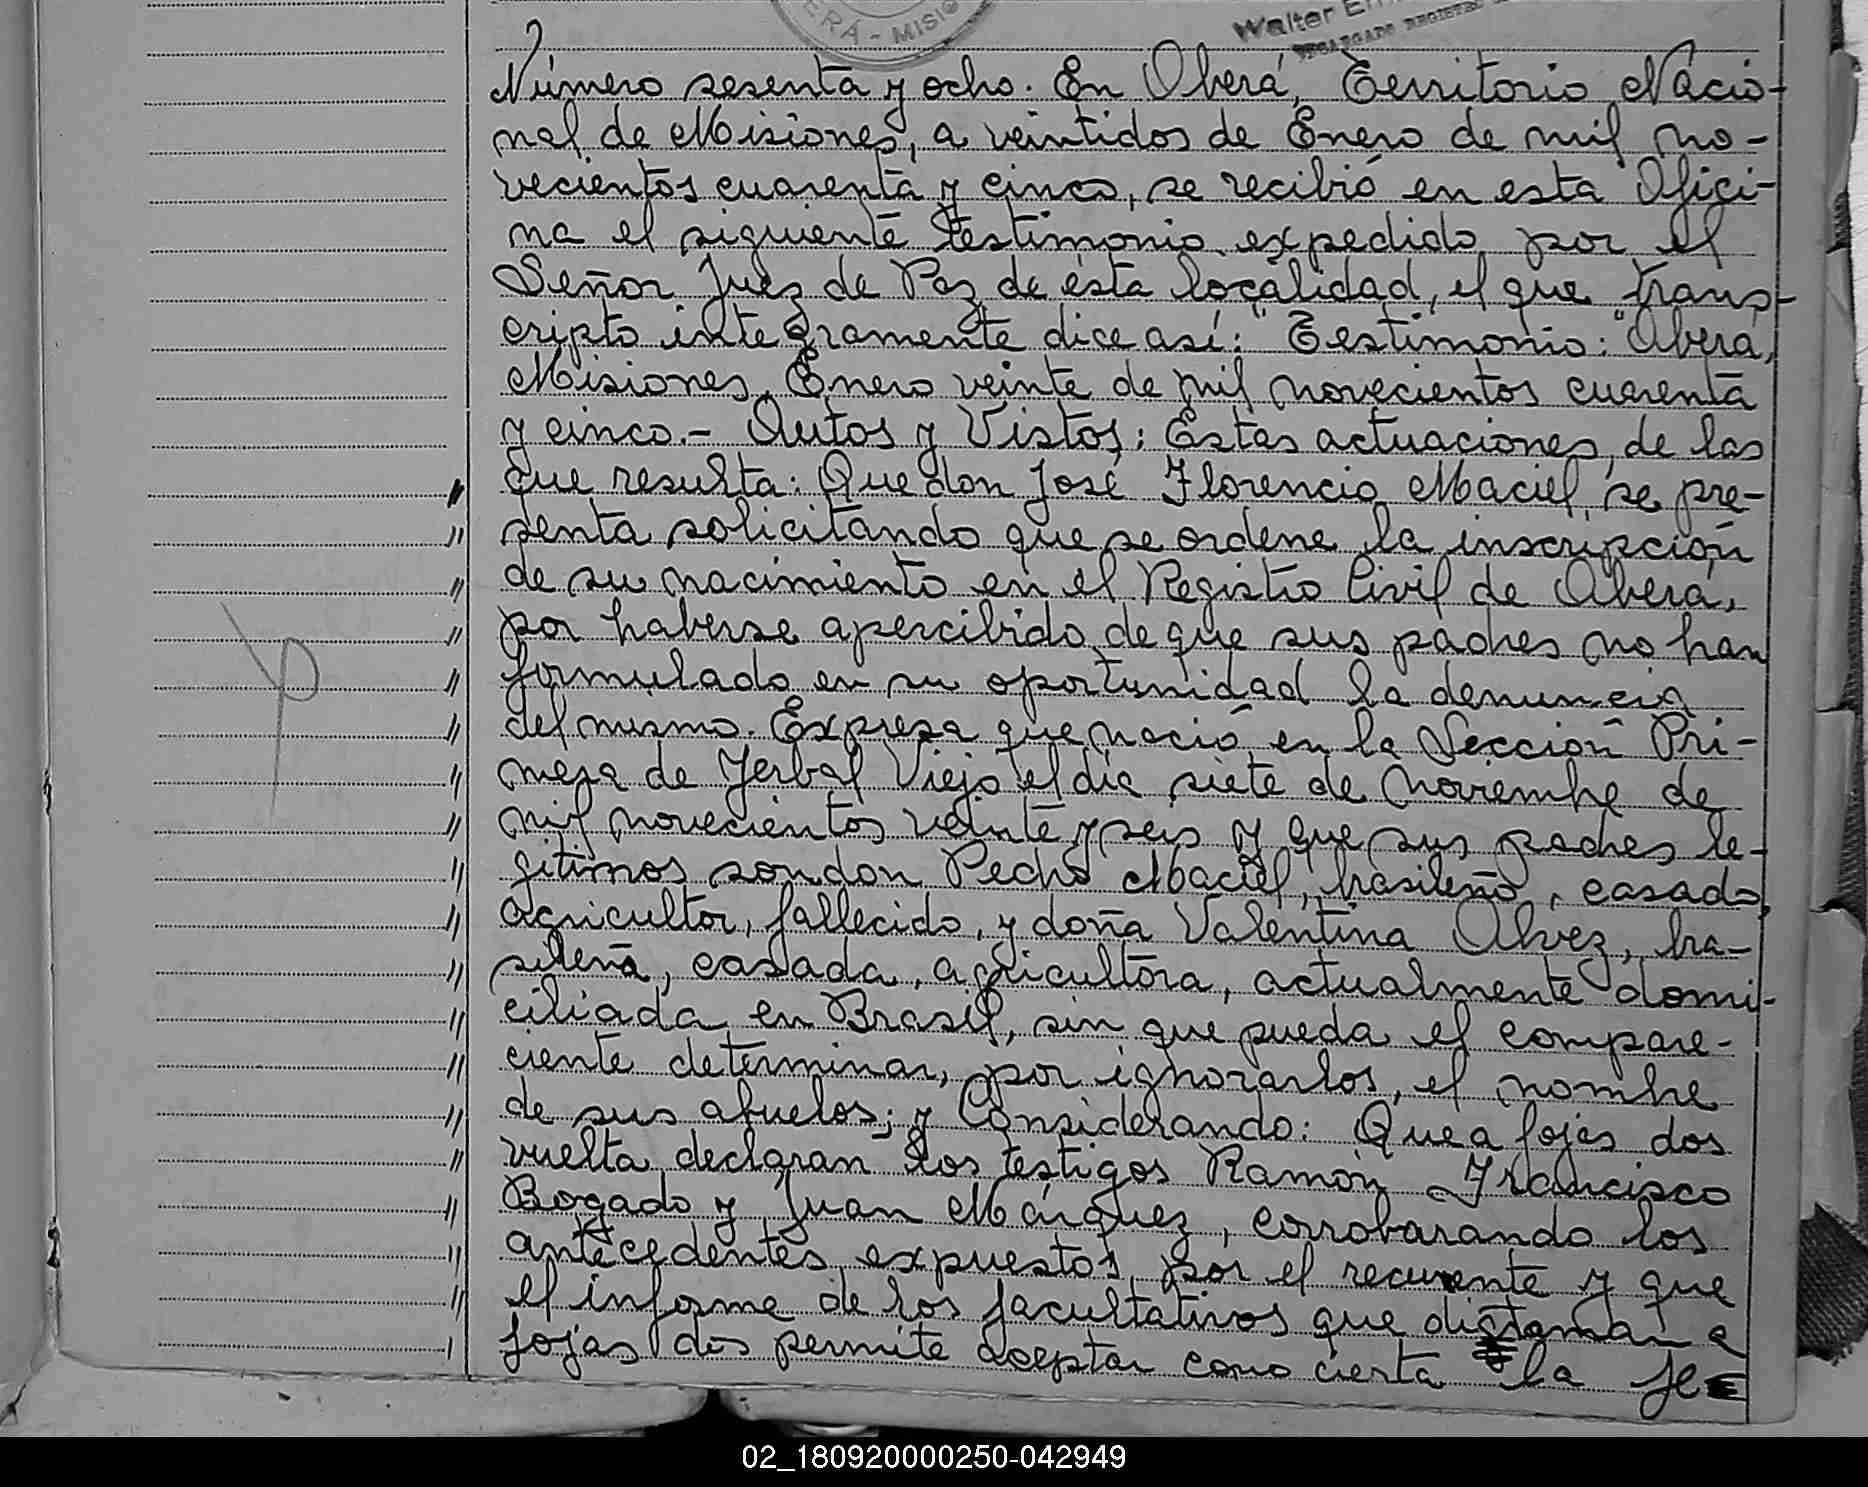 ERÁ - MISIO
Walter E
ENCARGADO REGISTRO
Número sesenta y ocho. En Oberá, Territorio Nacio-
nal de Misiones, a veintidos de Enero de mil no-
vecientos cuarenta y cinco, se recibió en esta Ofici-
na el siguiente testimonio expedido por el
Señor Juez de Paz de esta localidad, el que trans-
cripto integramente dice así: "Testimonio: "Oberá,
Misiones, Enero veinte de mil novecientos cuarenta
y cinco.- Autos y Vistos: Estas actuaciones, de las
que resulta: Que don José Florencio Maciel, se pre-
senta solicitando que se ordene la inscripción
de su nacimiento en el Registro Civil de Oberá,
por haberse apercibido de que sus padres no han
formulado en su oportunidad la denuncia
del mismo. Expresa que nació en la Sección Pri-
mera de Yerbal Viejo el día siete de noviembre de
mil novecientos veinte y seis y que sus padres le-
gitimos son don Pedro Maciel, brasileño, casado,
agricultor, fallecido, y doña Valentina Alvez, bra-
sileña, casada, agricultora, actualmente domi-
ciliada en Brasil, sin que pueda el compare-
ciente determinar, por ignorarlos, el nombre
de sus abuelos; y Considerando: Que a fojas dos
vuelta declaran los testigos Ramón Francisco
Bogado y Juan Márquez, corrobarando los
antecedentes expuestos por el recurrente y que
el informe de los facultativos que dictaman a
fojas dos permite aceptar como cierta la fe
02_180920000250-042949